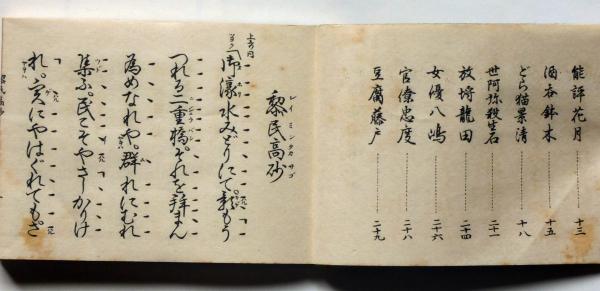 能評花月 十三
酒呑鉢木 十五
どら猫景清 十八
世阿弥殺生石 二十一
放埓龍田 二十四
女優八嶋 二十六
官僚忠度 二十八
豆腐藤戸 二十九
黎民高砂
レイミンタカサゴ
上音同
御濠水みどりにて。影もう
つれる二重橋。それを拝まん
為めなれや。群れにむれ
集ふ。民こそやさしかりけ
れ。実にやはぐれても。ざ